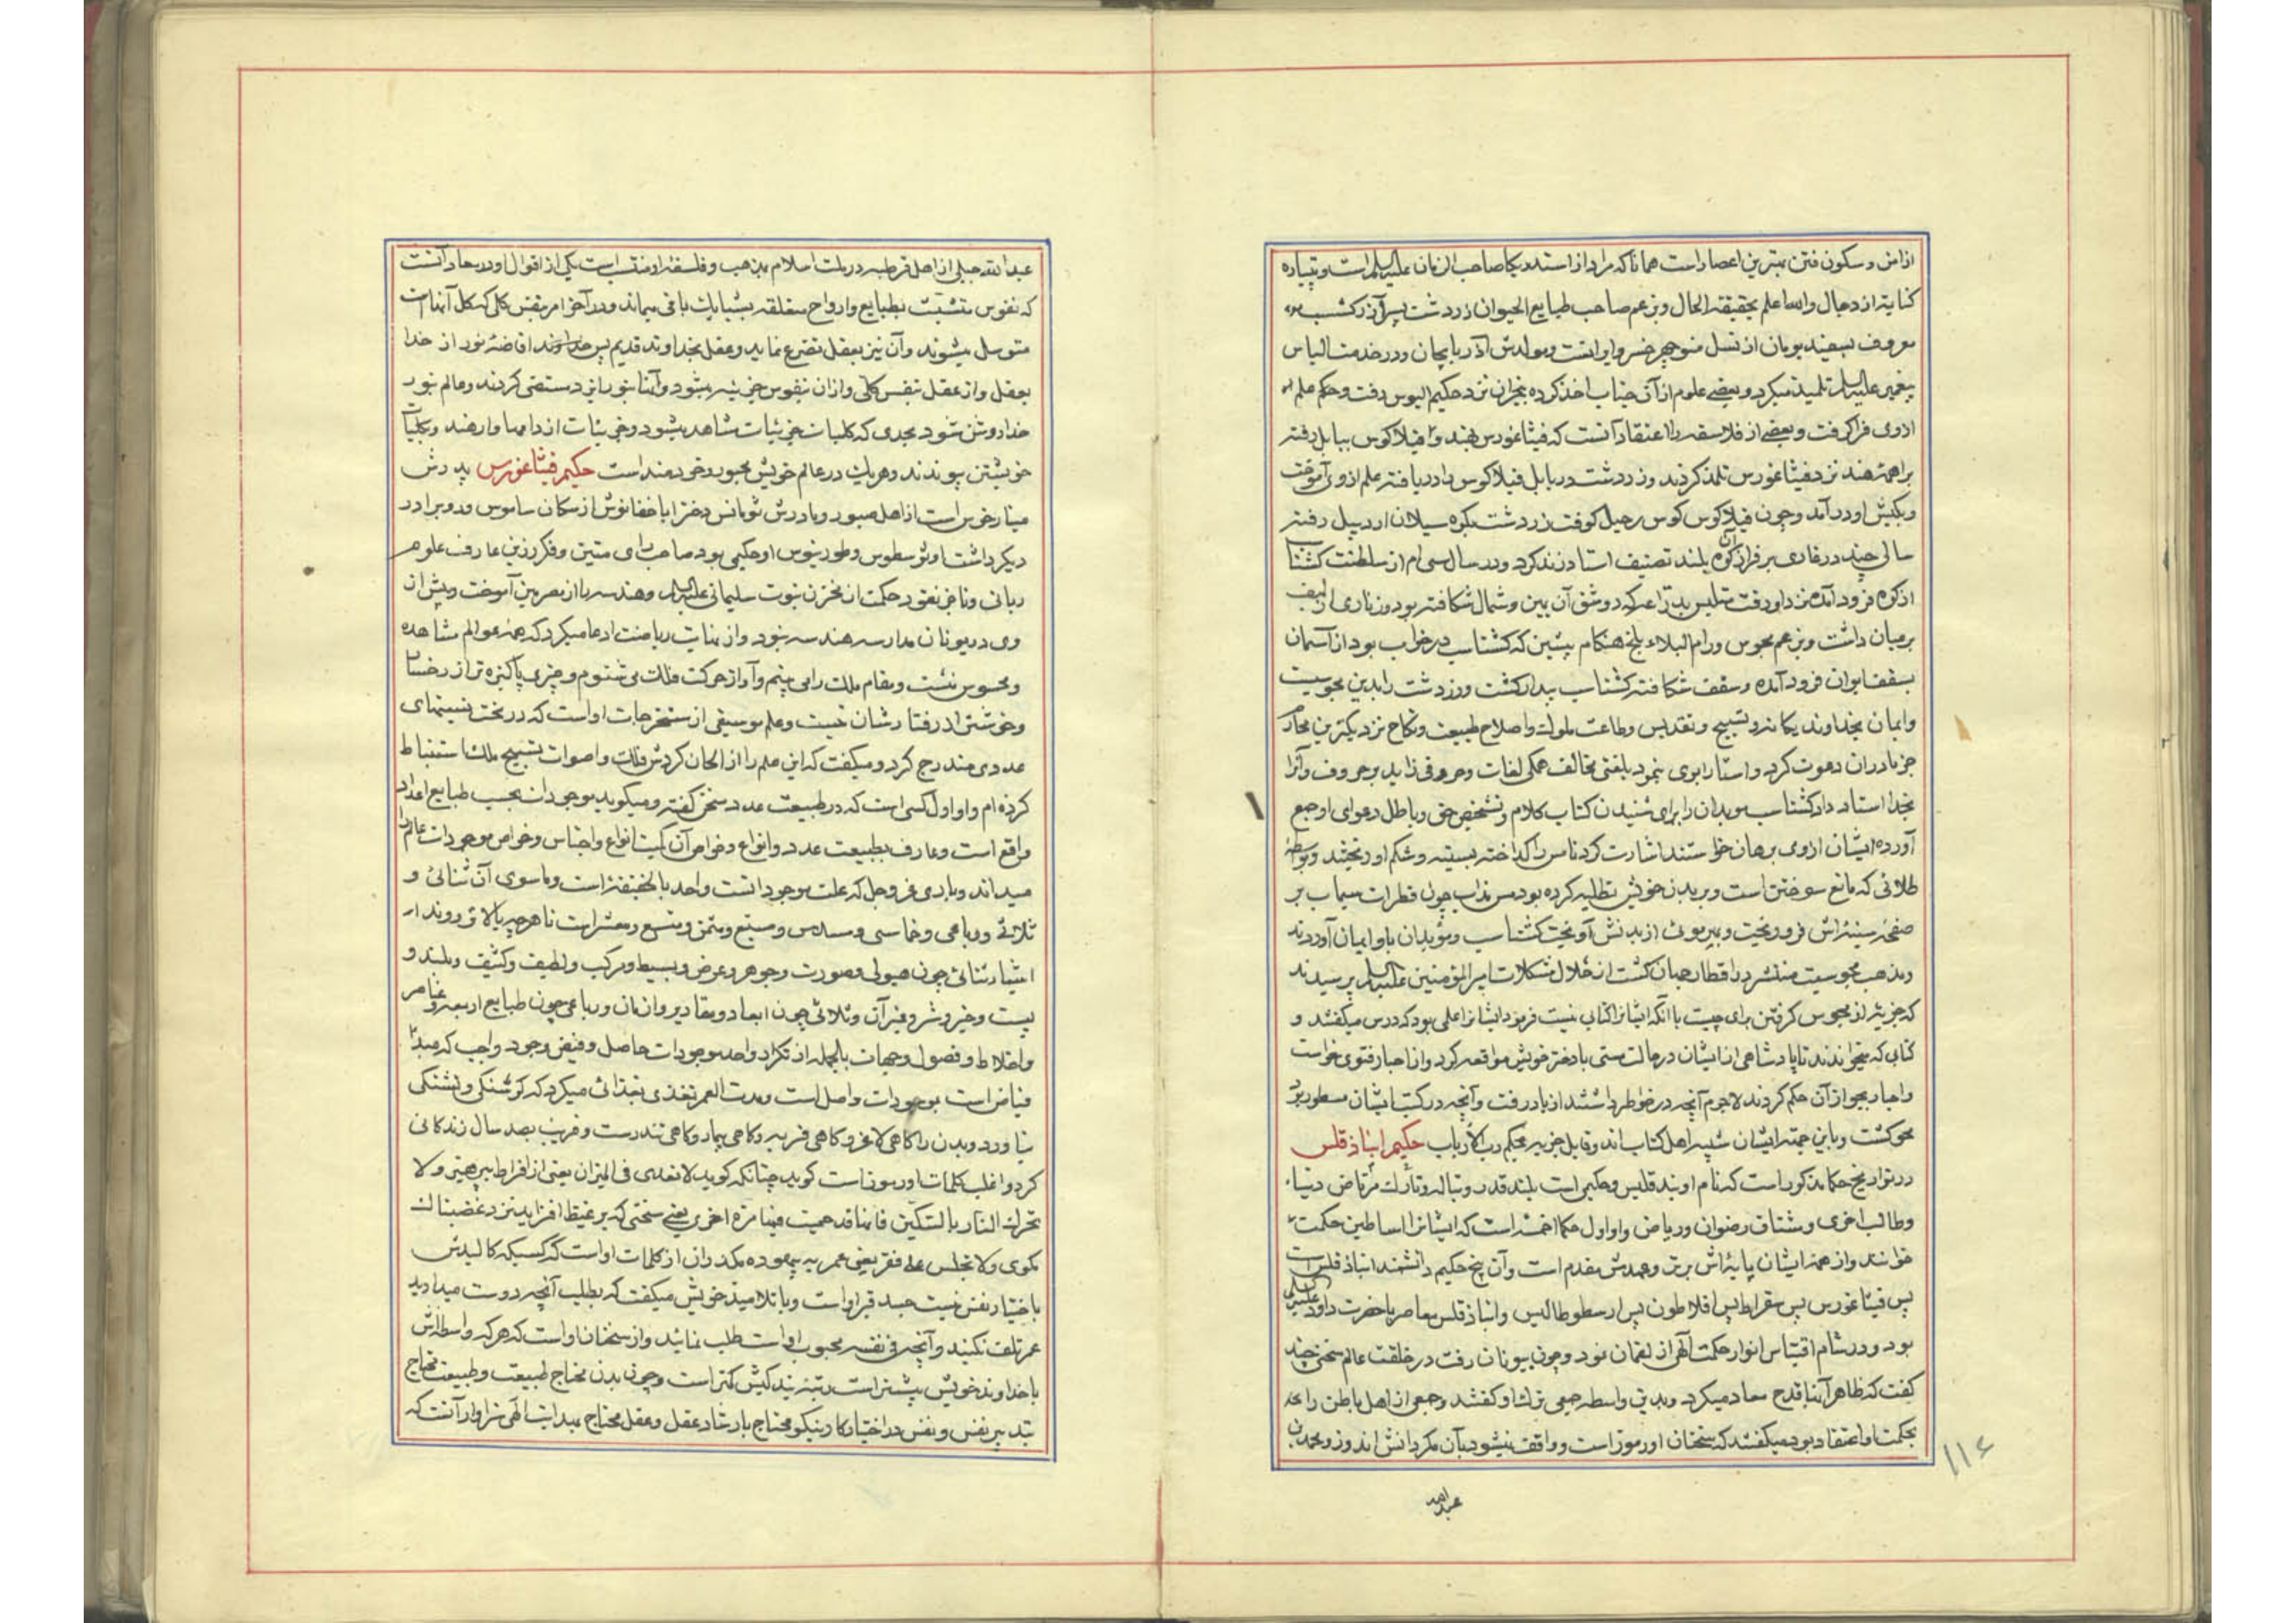 از امن و سکون فتن بهترین اعصار است همانا که مراد از استدریکا صاحب الزمان علیه السلام است و پتیاره
کنایة از دجال والله اعلم بحقیقة الحال و بزعم صاحب طبایع الحیوان زردشت پسر آزرکشسب
معروف بسفیدبومان از نسل منوچهر خسرو ایرانست و مولدش آذربایجان و در خدمت الیاس
پیغمبر علیه السلام تلمیذ میکرد و بعضی علوم از آن جناب اخذ کرده بنجران نزد حکیم الیوس رفت و حکم علم
از وی فرا گرفت و بعضی از فلاسفه را اعتقاد آنست که فیثاغورس بهند و فیلاکوس ببابل رفته
براهمهٔ هند نزد فیثاغورس تلمذ کردند و زردشت در بابل فیلاکوس را دریافته علم از وی آموخت
و بکیش او درآمد و چون فیلاکوس کوس رحیل کوفت زردشت بکوه سیلان اردبیل رفته
سالی چند در غاری بر فراز آن کوه بلند تصنیف استا و زند کرد و در سال سی ام از سلطنت کشتاسب
از کوه فرود آمده نزد او رفت متلبس بدراعه که دو شق آن یمین و شمال شکافته بود و زناری از لیف
بر میان داشت و بزعم مجوس در ام البلاد بلخ هنگام پیشین که کشتاسب در خواب بود از آسمان
بسقف ایوان فرود آمده و سقف شکافته کشتاسب بیدار کشت و زردشت را بدین مجوسیت
و ایمان بخداوند یکانه و تسبیح و تقدیس و طاعت ملوک و اصلاح طبیعت و نکاح نزدیکترین محارم
جز مادران دعوت کرد و استا را بوی نمود بلغتی مخالف همکی لغات و حروفی زاید بر حروف و آنرا
بخدا استاد داد کشتاسب موبدان را برای شنیدن کتاب کلام و تشخیص حق و باطل دعوای او جمع
آورده ایشان از وی برهان خواستند اشارت کرد تا مس را کداخته بسینه و شکم او ریختند و بواسطه
طلائی که مانع سوختن است و بر بدن خویش تطلیه کرده بود مس مذاب چون قطرات سیماب بر
صفحهٔ سینه اش فرو ریخت و بهر موئی از بدنش آویخت کشتاسب و موبدان باو ایمان آوردند
و مذهب مجوسیت منتشر در اقطار جهان کشت از حلال مشکلات امیر المؤمنین علیه السلام پرسیدند
که جزیه از مجوس کرفتن برای چیست با آنکه ایشانرا کتابی نیست فرمود ایشانرا علمی بود که درس میکفتند و
کتابی که میخواندند تا پادشاهی از ایشان در حالت مستی با دختر خویش مواقعه کرد و از احبار فتوی خواست
و احبار بجواز آن حکم کردند لاجرم آنچه در خواطر داشتند از یاد رفت و آنچه در کتب ایشان مسطور بود
محو کشت و باین جهة ایشان شبیه اهل کتاب اند و قابل جزیه بحکم رب الارباب حکیم انباذقلس
در تواریخ حکما مذکور است که نام او بند قلیس و حکیمی است بلند قدر و تباله و تارک مرتاض دنیا
و طالب اخری و مشتاق رضوان و ریاض و او اول حکماء خمسه است که ایشانرا اساطین حکمت
خوانند و از همهٔ ایشان پایه اش برتر و عهدش مقدم است و آن پنج حکیم دانشمند انباذقلس است
پس فیثاغورس پس سقراط پس افلاطون پس ارسطوطالیس و انباذقلس معاصر با حضرت داود علیه السلام
بود و در شام اقتباس انوار حکمت آلهی از لقمان نمود و چون بیونان رفت در خلقت عالم سخنی چند
کفت که ظاهر آنها قدح معاد میکرد و بدین واسطه جمعی ترک او کفتند و جمعی از اهل باطن را که
بحکمت او اعتقاد بود میکفتند که سخنان او رموز است و واقف نمیشود بآن مکر دانش اندوز و محمد بن
عبدالله
۱۱۶
عبدالله جبلی از اهل قرطبه در ملت اسلام بمذهب و فلسفه او منتسب است یکی از اقوال او در معاد آنست
که نفوس متشبث بطبایع و ارواح متعلقه بشبایک باقی میماند و در آخر امر بنفس کلی که کل آنها است
متوسل میشوند و آن نیز بعقل تضرع نماید و عقل بخداوند قدیم پس خداوند افاضهٔ نور از خدا
بعقل و از عقل بنفس کلی و از آن بنفوس جزئیه میشود و آنها بنور ایزد مستضئی کردند و عالم بنور
خدا روشن شود بحدی که کلیات جزئیات مشاهد میشود و جزئیات از دامها وارهند و بکلیات
خویشتن پیوندند و هریک در عالم خویش محبور و خردمند است حکیم فیثاغورس پدرش
مینارخوس است از اهل صبور و مادرش ثومانس دختر اباخفانوش از سکان ساموس و دو برادر
دیکر داشت اونوسطوس و طورینوس او حکیمی بود صاحب رای متین و فکر رزین عارف علوم
ربانی و ناخ نقود حکمت از مخزن نبوت سلیمانی علیه السلام و هندسه را از مصریین آموخت و پیش از
وی در یونان مدارسه هندسه نبود و از نهایت ریاضت ادعا میکرد که همهٔ عوالم مشاهده
و محسوس منست و مقام ملک را می بینم و آواز حرکت فلک می شنوم و چیزی پاکیزه تر از رخسار
و خوشتر از رفتارشان نیست و علم موسیقی از مستخرجات او است که در تحت نسبتهای
عددی مندرج کرد و میکفت که این علم را از الحان کردش فلک و اصوات تسبیح ملک استنباط
کرده ام و او اول کسی است که در طبیعت عدد سخن کفته و میکوید موجودات بحسب طبایع اعداد
واقع است و عارف بطبیعت عدد و انواع و خواص آن کمیت انواع و اجناس و خواص موجودات عالم را
میداند و باری عز و جل که علت موجودات است واحد بالحقیقة است و ماسوی آن ثنائی و
ثلاثی و رباعی و خماسی و مسدس و مسبع و مثمن و متسع و معشر است تا هرچه بالاتر روند از
اشیاء ثنائی چون هیولی و صورت و جوهر و عرض و بسیط و مرکب و لطیف و کثیف و بلند و
پست و خیر و شر و غیر آن و ثلاثی چون ابعاد و مقادیر و ازمان و رباعی چون طبایع اربعه و عناصر
و اخلاط و فصول و جهات بالجمله از تکرار واحد موجودات حاصل و فیض وجود واجب که مبدء
فیاض است بموجودات واصل است و مدت العمر تغذی بغذائی میکرد که کرسنکی و تشنکی
نیاورد و بدن را کاهی لاغر و کاهی فربه و کاهی بیمار و کاهی تندرست و قریب بصد سال زندکانی
کرد و اغلب کلمات او رموز است کوید چنانکه کوید لا تعدی فی المیزان یعنی از افراط بپرهیز و لا
تحرک النار بالسکین فانها قد حمیت فیها مرة اخری یعنی سخنی که بر غیظ افزاید نزد غضبناک
مکوی و لا تجلس علی قفیز یعنی عمر به بیهوده مکذران از کلمات او است که کسیکه کالبدش
باختیار نفس نیست جسد قبر او است و با تلامیذ خویش میکفت که بطلب آنچه دوست میدارید
عمر تلف نکنید و آنچه فی نفسه محبوب او است طلب نمائید و از سخنان او است که هرکه واسطه اش
باخداوند خویش بیشتر است رتبهٔ بندکیش کمتر است و چون بدن محتاج طبیعت و طبیعت محتاج
بتدبیر نفس و نفس در اختیار کار نیکو محتاج بارشاد عقل و عقل محتاج بهدایت الهی سزاوار آنست که